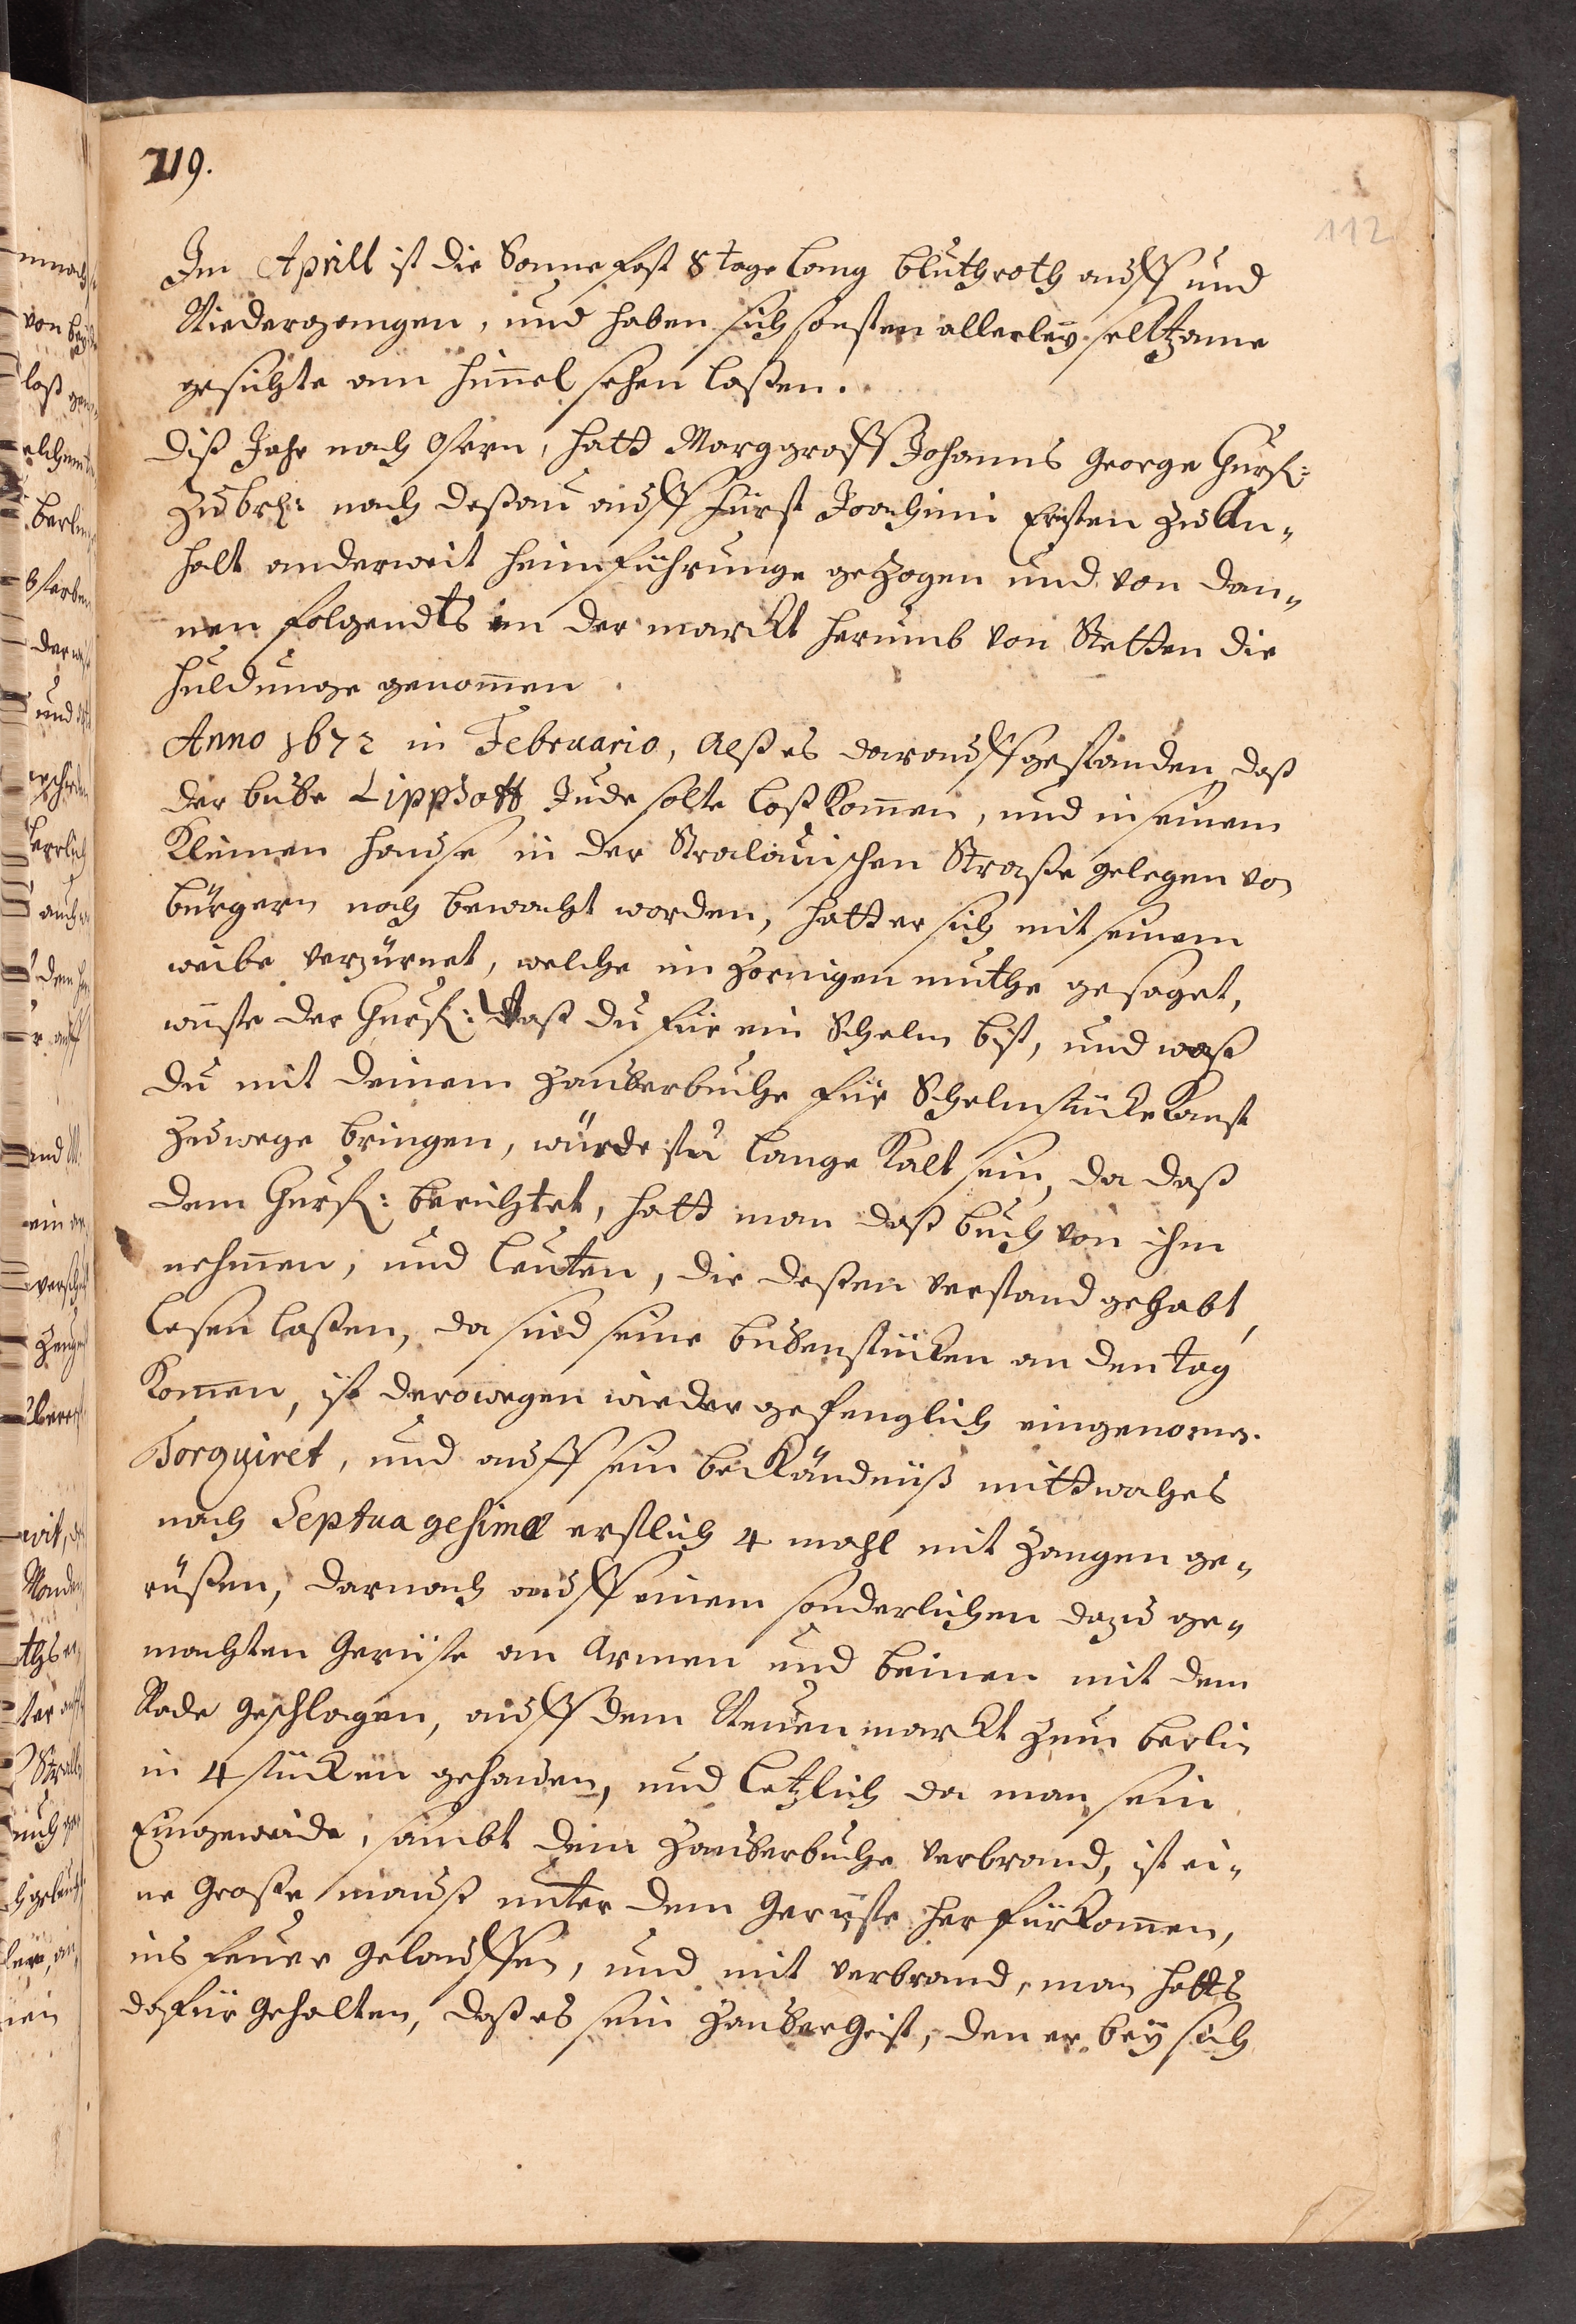 219.
112
Im Aprill ist die Sonne fast 8 tage lang bluthroth auff und
Niedergangen, und haben sich sonsten allerley selltzame
gesichte am himmel sehen laßen.
Diß Jahr nach Ostern, hatt Marggraff Johanns George Churf:
zu Br: nach Deßau auff Fürst Joachimi Ersten zu An„
halt anderweit heimführunge gezogen und von dan„
nen folgendts in der marckt herumb von Stetten die
huldunge genommen.
Anno 1672 in Februario, Alß es darauff gestanden, daß
der bube Lippsolt Jude solte loß kommen, und in seinem
kleinen hause in der Stralauischen Straße gelegen von
bürgern noch bewacht worden, hatt er sich mit seinem
weibe verzürnet, welche im zornigen muthe gesaget,
wuste der Churf: Waß du für ein Schelm bist, und waß
du mit deinem Zauberbuche für Schelmstücke kanst
zuwege bringen, würdestu lange kalt sein, da daß
dem Churf: berichtet, hatt man daß buch von ihm
nehmen, und leuten, die deßen verstand gehabt,
lesen laßen, da sind seine bubenstücken an den tag
kommen, ist derowegen wieder gefenglich eingenommen.
Torquiret, und auff sein bekändnüß mittwoches
nach Septuagesimæ erstlich 4 mahl mit Zangen ge„
rißen, darnach auff einem sonderlichen dazu ge„
machten Gerüste an Armen und beinen mit dem
Rade geschlagen, auff dem Neuen marckt zum Berlin
in 4 stücken gehauen, und letzlich da man sein
Eingeweide, sambt dem Zauberbuche verbrand, ist ei„
ne große mauß unter dem Gerüste herfürkommen,
ins feuer gelauffen, und mit verbrand, man hatts
dafür gehalten, daß es sein Zaubergeist, den er bey sich